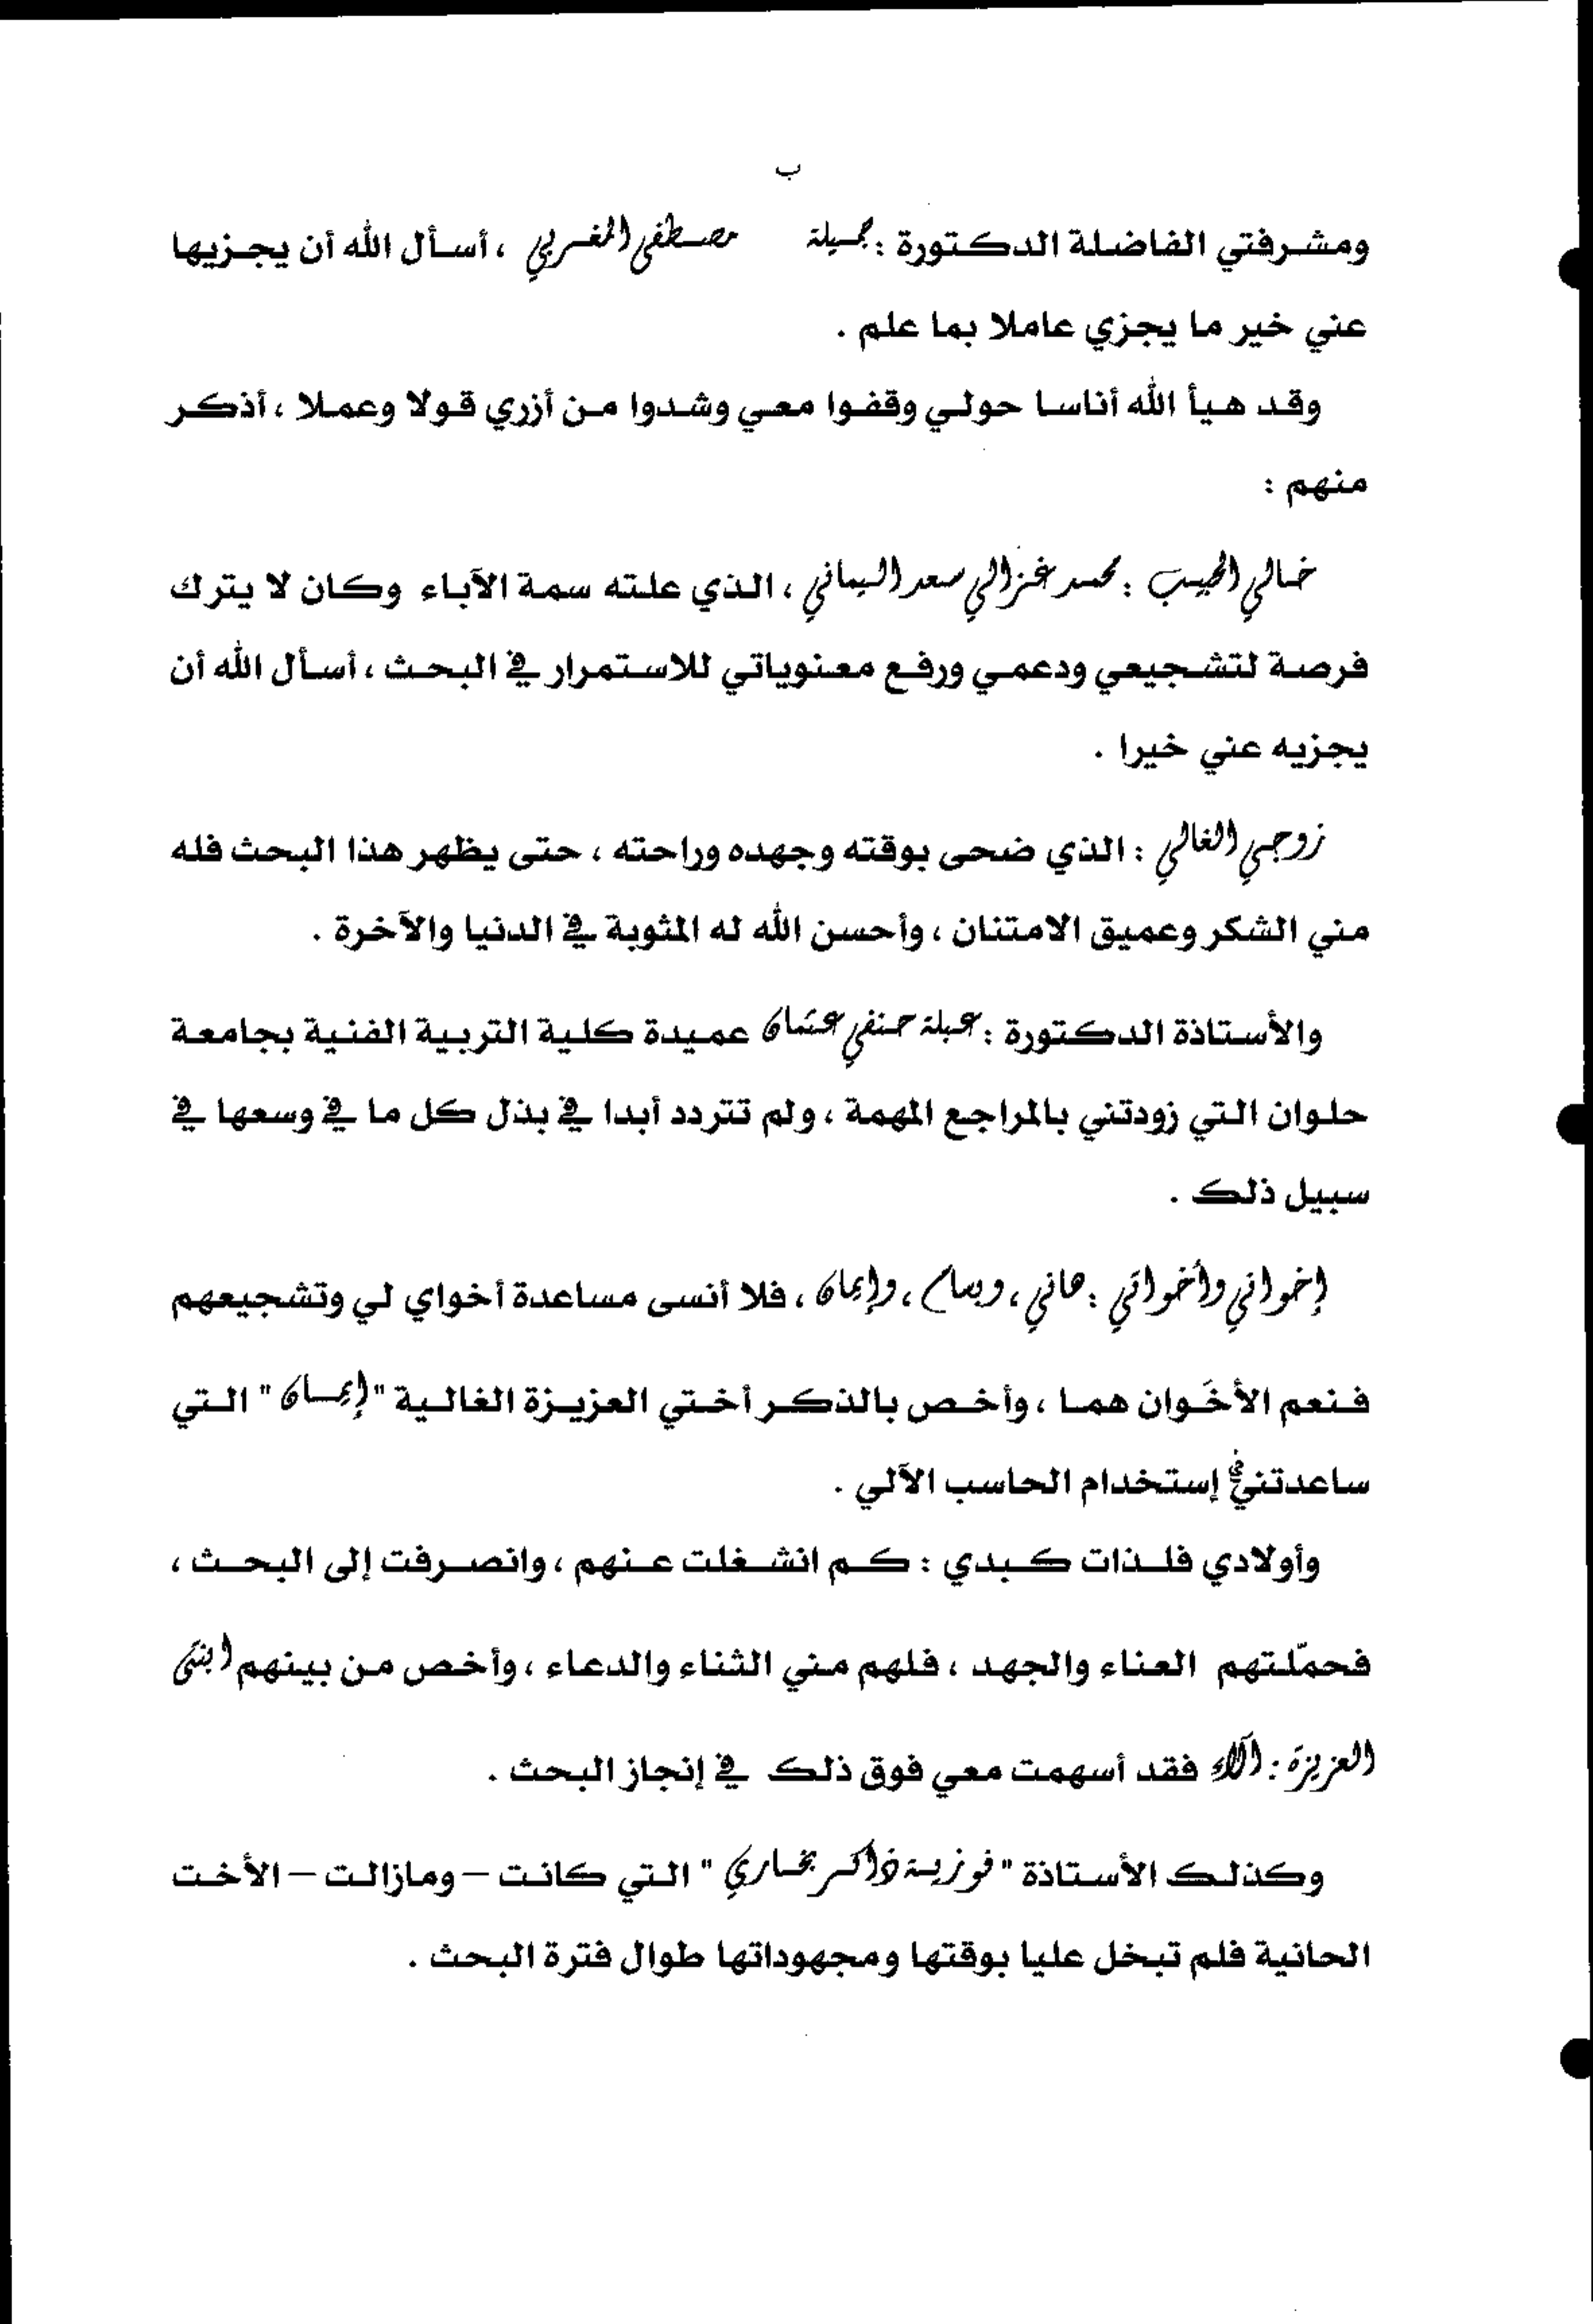 ب
ومشرفتي الفاضلة الدكتورة : جميلة مصطفى المغربي ، أسأل الله أن يجزيها
عني خير ما يجزي عاملا بما علم .
وقد هيأ الله أناسا حولي وقفوا معي وشدوا من أزري قولا وعملا ، أذكر
منهم :
خالي الحبيب : محمد غزالي سعد اليماني ، الذي علته سمة الآباء وكان لا يترك
فرصة لتشجيعي ودعمي ورفع معنوياتي للاستمرار في البحث ، أسأل الله أن
يجزيه عني خيرا .
زوجي الغالي : الذي ضحى بوقته وجهده وراحته ، حتى يظهر هذا البحث فله
مني الشكر وعميق الامتنان ، وأحسن الله له المثوبة في الدنيا والآخرة .
والأستاذة الدكتورة : عبلة حنفي عثمان عميدة كلية التربية الفنية بجامعة
حلوان التي زودتني بالمراجع المهمة ، ولم تتردد أبدا في بذل كل ما في وسعها في
سبيل ذلك .
إخواني وأخواتي : هاني ، وبسام ، وإيمان ، فلا أنسى مساعدة أخواي لي وتشجيعهم
فنعم الأخَوان هما ، وأخص بالذكر أختي العزيزة الغالية "إيمان" التي
ساعدتني في إستخدام الحاسب الآلي .
وأولادي فلذات كبدي : كم انشغلت عنهم ، وانصرفت إلى البحث ،
فحمّلتهم العناء والجهد ، فلهم مني الثناء والدعاء ، وأخص من بينهم ابنتي
العزيزة : آلاء فقد أسهمت معي فوق ذلك في إنجاز البحث .
وكذلك الأستاذة "فوزية ذاكر بخاري" التي كانت – ومازالت – الأخت
الحانية فلم تبخل عليا بوقتها ومجهوداتها طوال فترة البحث .